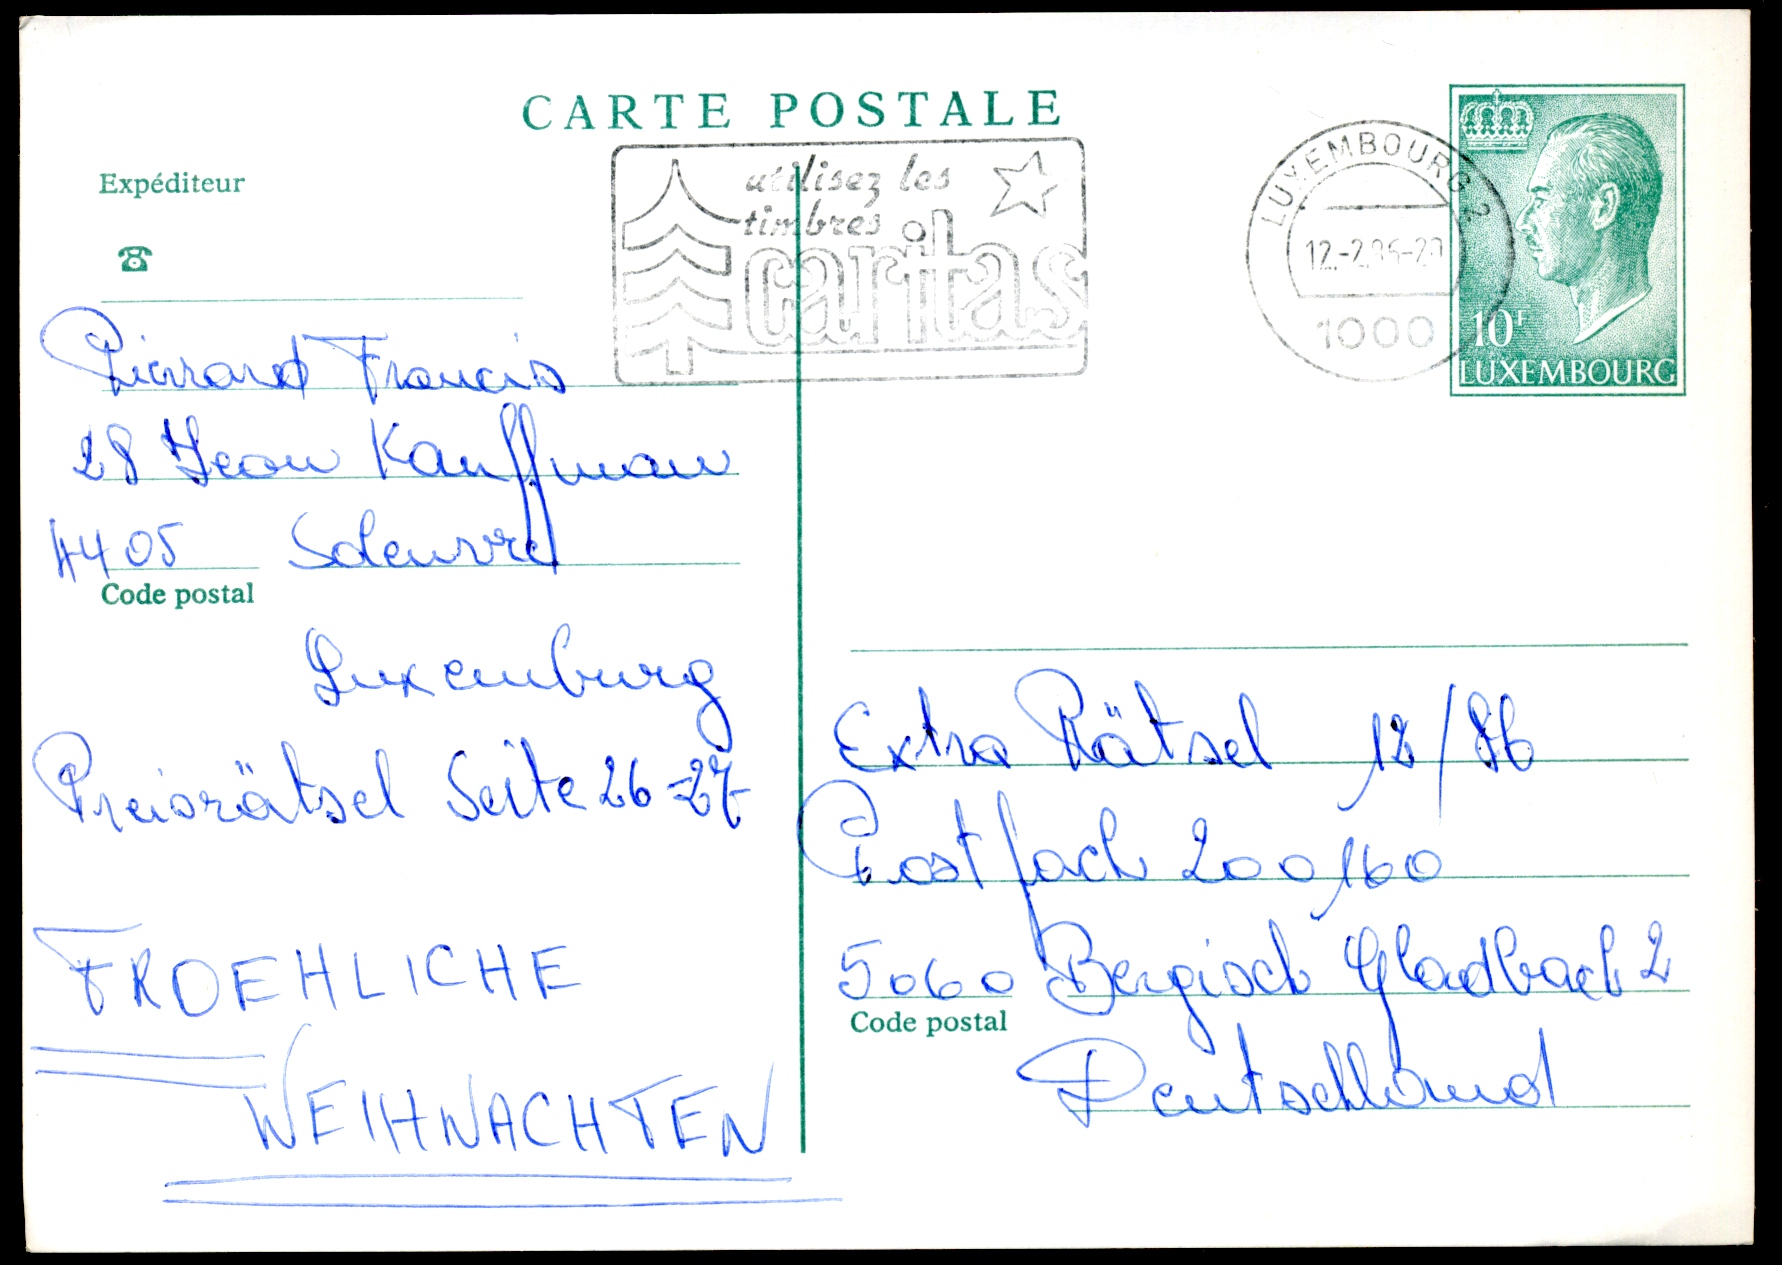 CARTE POSTALE
utilisez les
timbres
caritas
LUXEMBOURG 2
12.-2.86-20
1000
10F
LUXEMBOURG
Expéditeur
Pierrard Francis
28 Jean Kauffman
4405 Soleuvre
Code postal
Luxemburg
Preisrätsel Seite 26-27
FROEHLICHE
WEIHNACHTEN
Extra Rätsel 12/86
Postfach 200160
5060 Bergisch Gladbach 2
Code postal
Deutschland